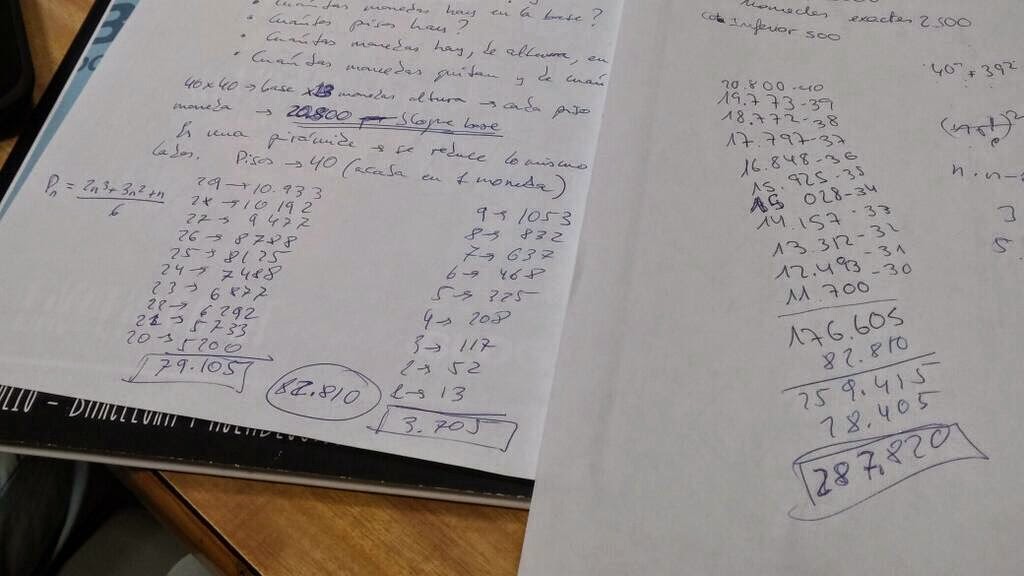 • Cuántas monedas hay en la base?
• Cuántos pisos hay?
• Cuántas monedas hay, de altura, en
• Cuántas monedas quitan y de cuán
40x40 → base x13 monedas altura → cada piso
moneda → 20.800 bloque base
Es una pirámide → se reduce lo mismo
lados. Pisos → 40 (acaba en 1 moneda)
Pn = 2n³+3n²+n
6
29 → 10.933
28 → 10192
27 → 9477
26 → 8788
25 → 8125
24 → 7488
23 → 6877
22 → 6292
21 → 5733
20 → 5200
79.105
82.810
9 → 1053
8 → 832
7 → 637
6 → 468
5 → 325
4 → 208
3 → 117
2 → 52
1 → 13
3.705
monedas exactes 2.500
inferior 500
20.800-40
19.773-39
18.772-38
17.797-37
16.848-36
15.925-35
15 028-34
14.157-33
13.312-32
12.493-31
11.700 -30
176.605
82.810
259.415
28.405
287.820
40² + 39²
3
5